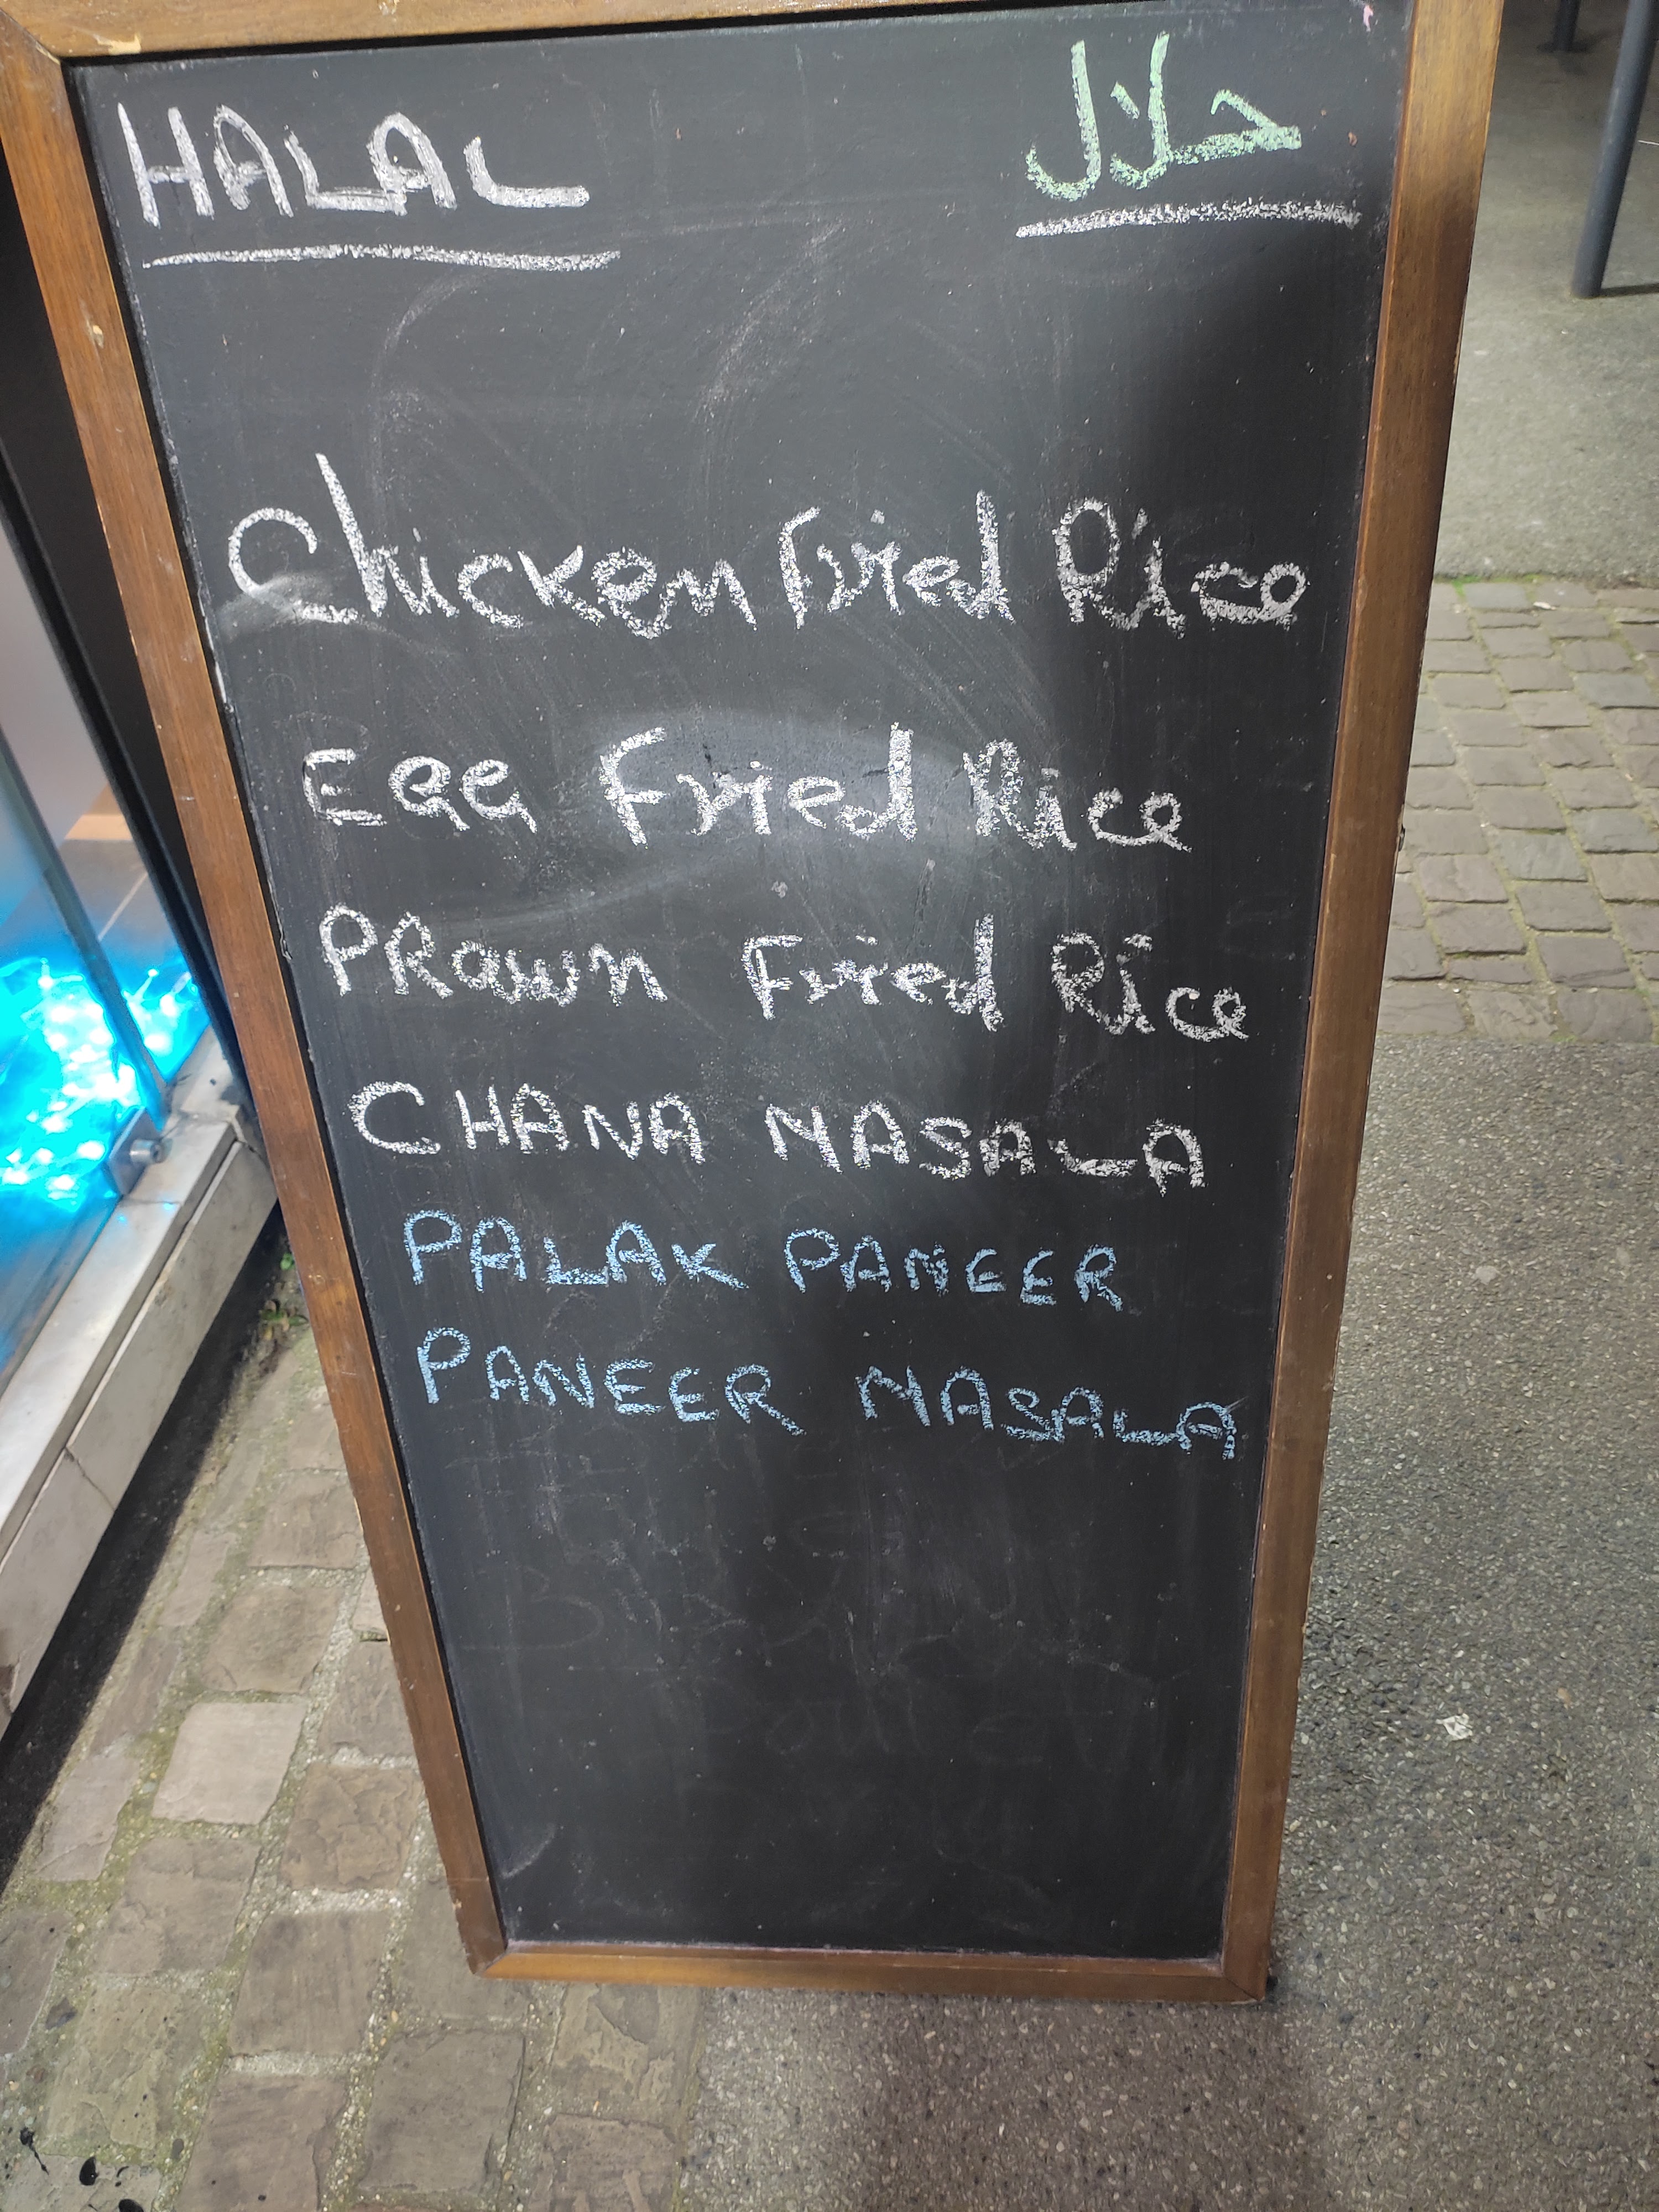 HALAL حلال
Chicken Fried Rice
Egg Fried Rice
PRawn Fried Rice
CHANA MASALA
PALAK PANEER
PANEER MASALA